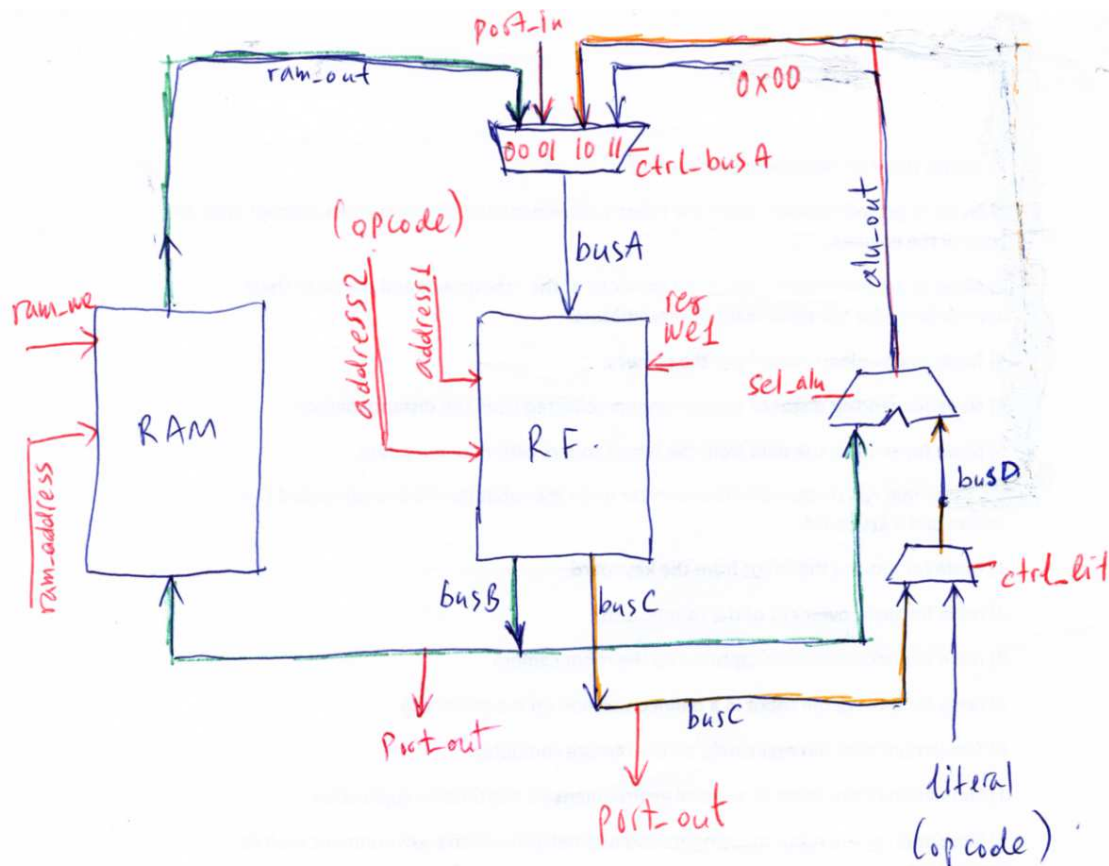 port_in
ram_out
0x00
00 01 10 11
ctrl_busA
(opcode)
busA
alu_out
address2
address1
ram_we
reg
we1
sel_alu
RAM
R.F.
busD
ram_address
busB
busC
ctrl_lit
busC
port_out
port_out
literal
(opcode)